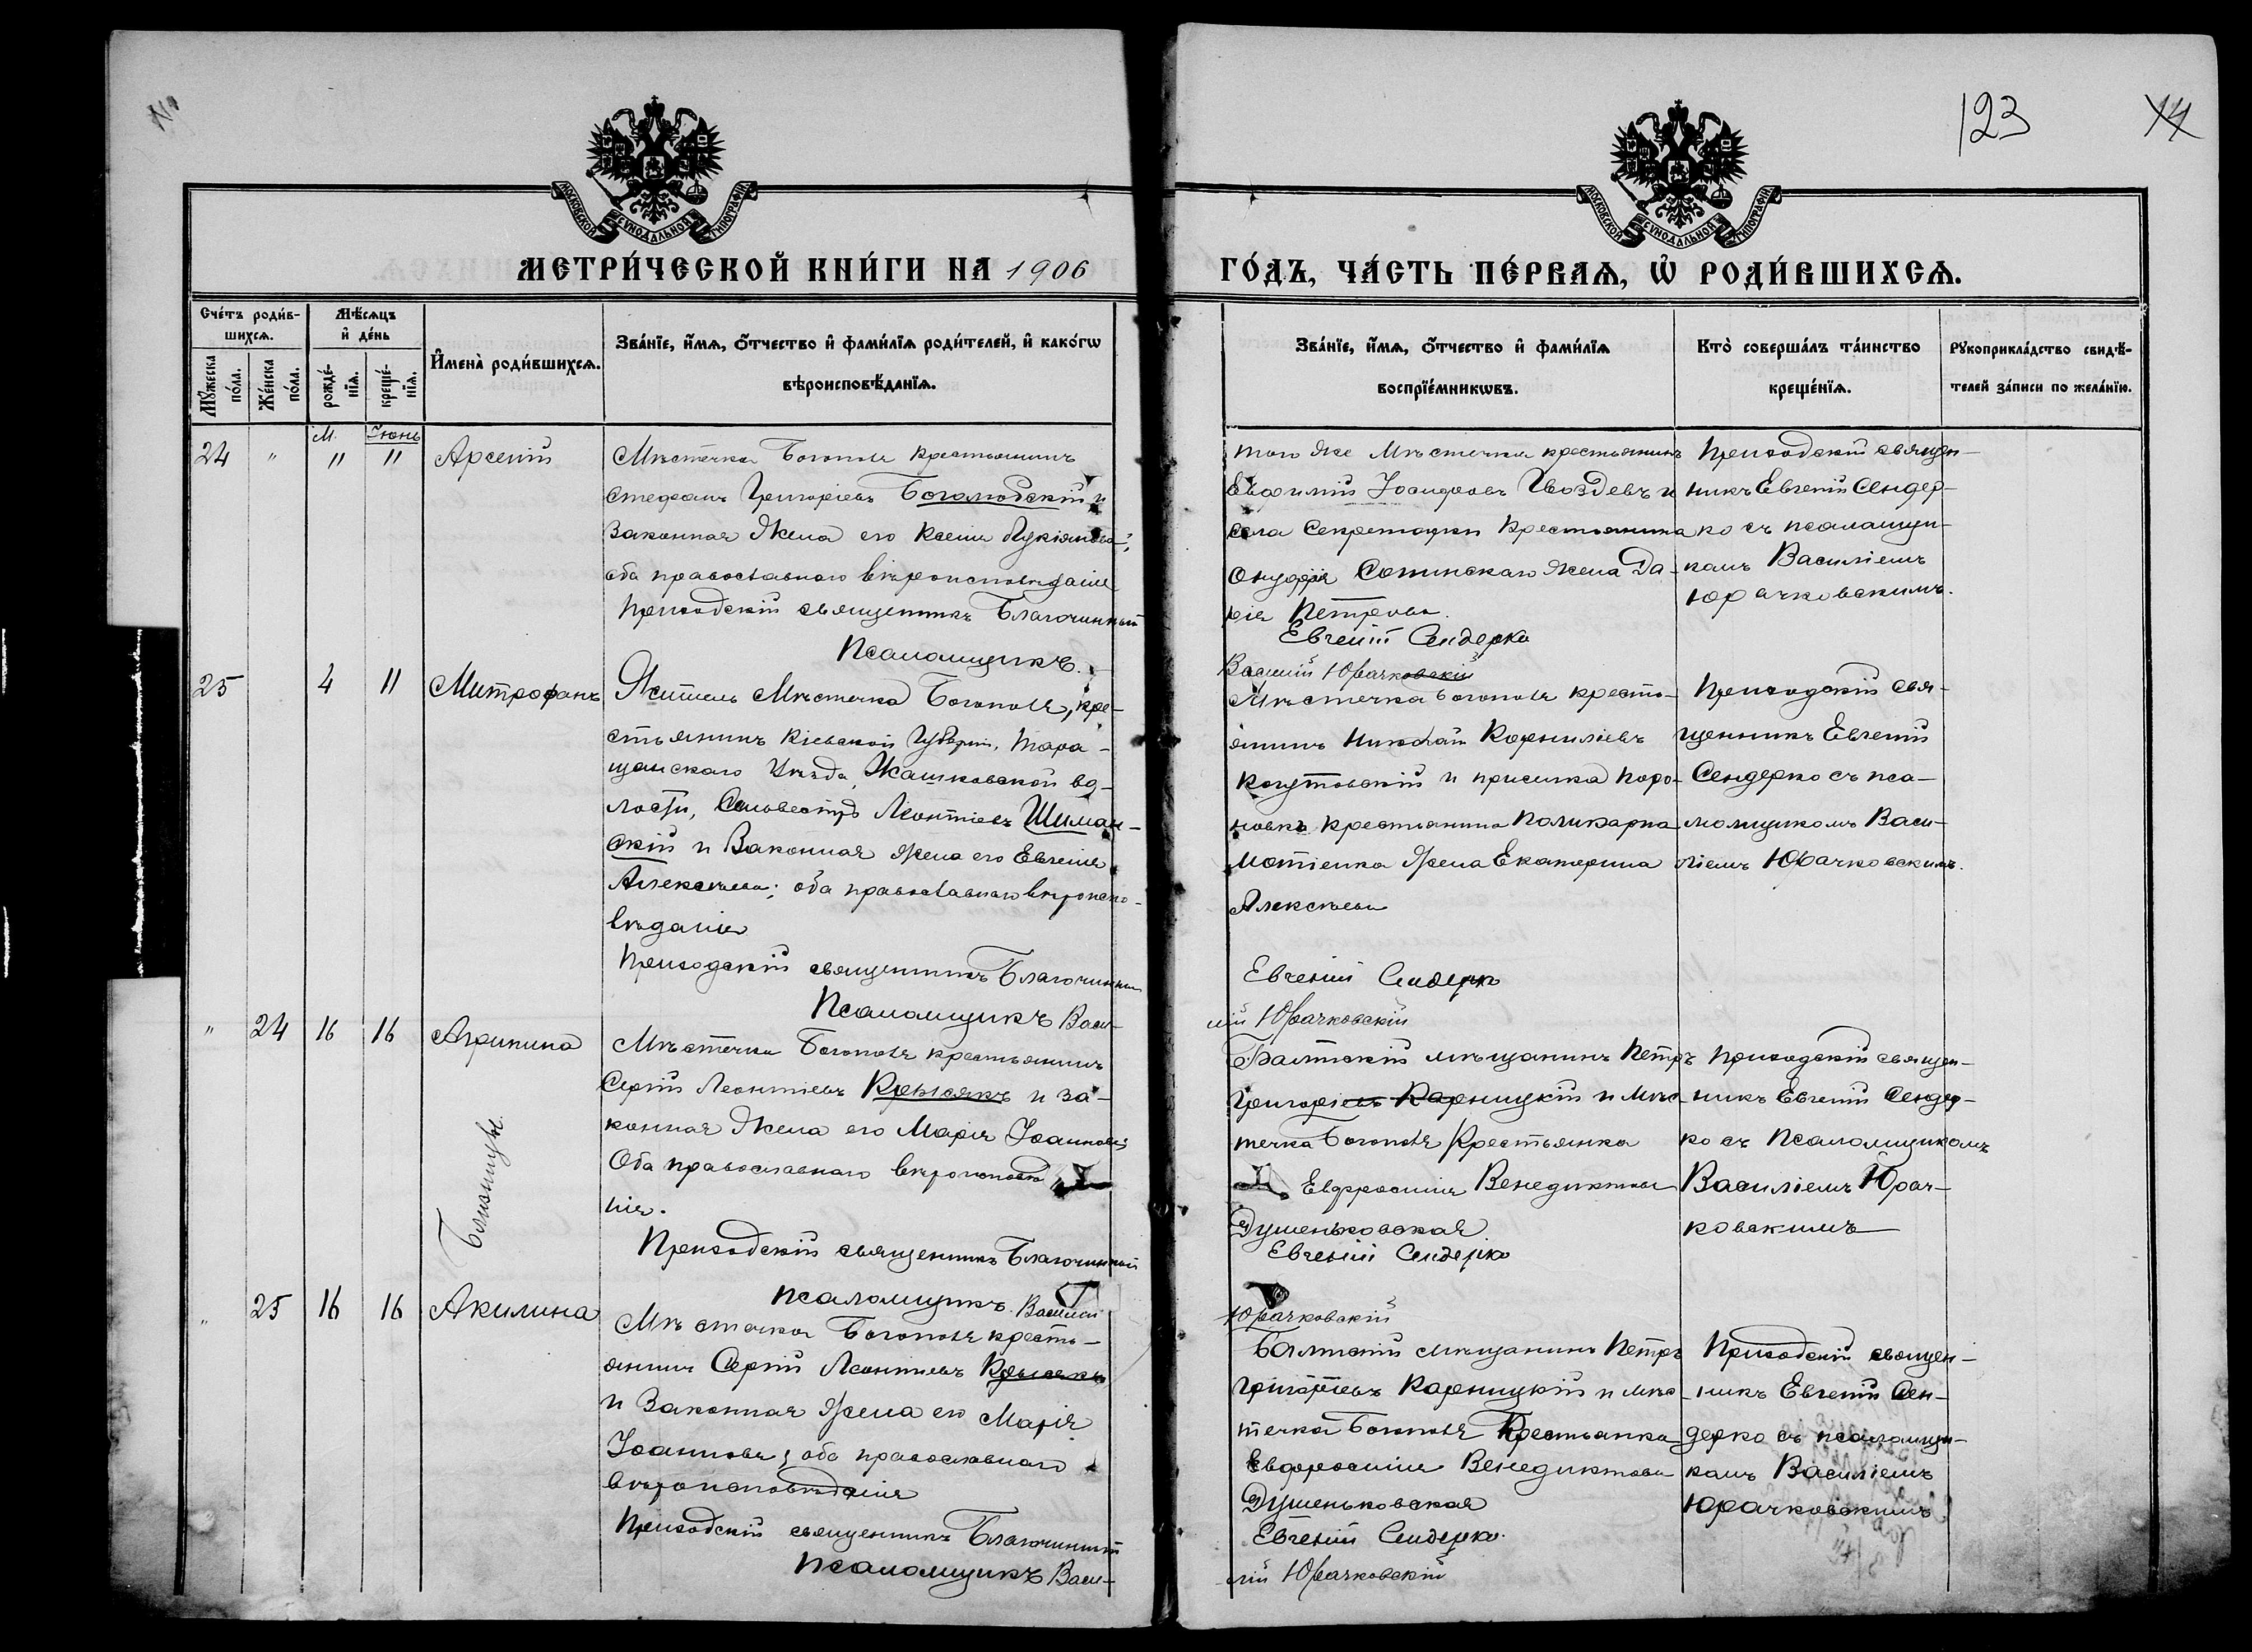 123
14
МОСКОВСКОЙ СѴНОДАЛЬНОЙ ТИПОГРАФІИ
МОСКОВСКОЙ СѴНОДАЛЬНОЙ ТИПОГРАФІИ
МЕТРИ́ЧЕСКОЙ КНИ́ГИ НА 1906
ГО́ДЪ, ЧА́СТЬ ПЕ́РВАѦ, Ѡ҆ РОДИ́ВШИХСѦ.
Сче́тъ роди́в-
шихсѧ.
Мꙋ́жеска
по́ла.
Же́нска
по́ла.
Мѣ́сѧцъ
и҆ де́нь
рожде́-
нїѧ.
креще́-
нїѧ.
И҆мена̀ роди́вшихсѧ.
Зва́нїе, и҆́мѧ, ѻ҆́тчество и҆ фами́лїѧ роди́телей, и҆ како́гѡ
вѣроисповѣ́данїѧ.
Зва́нїе, и҆́мѧ, ѻ҆́тчество и҆ фами́лїѧ
воспрїе́мникѡвъ.
Кто̀ соверша́лъ та́инство
креще́нїѧ.
Рꙋкоприкла́дство свидѣ́-
телей за́писи по жела́нїю.
М. Іюнь
24 " 11 11 Арсеній
Мѣстечка Богополя крестьянинъ
Стефанъ Григоріевъ Богомодскій и
Законная Жена его Ксенія Лукіянова;
оба православнаго вѣроисповѣданія
Приходскій священникъ Благочинный
Псаломщикъ.
того Же Мѣстечка крестьянинъ
Евфимій Іосифовъ Гвоздевъ и
села Секретарки Крестьянина
Онуфрія Сотинскаго Жена Да-
рія Петрова
Евгеній Сендерко
Василій Юрачковскій
Приходскій священ-
никъ Евгеній Сендер-
ко съ псаломщи-
комъ Василіемъ
Юрачковскимъ.
25 4 11 Митрофанъ
Житель Мѣстечка Богополя, кре-
стьянинъ Кіевской Губерніи, Тара-
щанскаго Уѣзда, Жашковской во-
лости, Сильвестръ Леонтіевъ Шиман-
скій и Законная Жена его Евгенія
Алексѣева; оба православнаго вѣроиспо-
вѣданія
Приходскій священникъ Благочинный
Псаломщикъ Васи-
Мѣстечка Богополя кресть-
янинъ Николай Корниліевъ
Когутовскій и приселка Норо-
новка крестьянина Поликарпа
Мотіенка Жена Екатерина
Алексѣева
Евгеній Сендерко
лій Юрачковскій
Приходскій свя-
щенникъ Евгеній
Сендерко съ пса-
ломщикомъ Васи-
ліемъ Юрачковскимъ.
" 24 16 16 Агрипина
Близнецы
Мѣстечка Богополя крестьянинъ
Сергій Леонтіевъ Крысякъ и за-
конная Жена его Марія Іоаннова;
Оба православнаго вѣроисповѣда-
нія.
Приходскій священникъ Благочинный
Псаломщикъ Василій
Балтскій мѣщанинъ Петръ
Григоріевъ Карницкій и Мѣс-
течка Богополя Крестьянка
Евфросинія Венедиктова
Душеньковская
Евгеній Сендерко
Юрачковскій
Приходскій священ-
никъ Евгеній Сендер-
ко съ Псаломщикомъ
Василіемъ Юрач-
ковскимъ
" 25 16 16 Акилина
Мѣстечка Богополя кресть-
янинъ Сергій Леонтіевъ Крысякъ
и Законная Жена его Марія
Іоаннова; оба православнаго
вѣроисповѣданія
Приходскій священникъ Благочинный
Псаломщикъ Васи-
Балтскій мѣщанинъ Петръ
Григоріевъ Карницкій и мѣс-
течка Богополя Крестьянка
Евфросинія Венедиктова
Душеньковская
Евгеній Сендерко.
лій Юрачковскій
Приходскій священ-
никъ Евгеній Сен-
дерко съ псаломщи-
комъ Василіемъ
Юрачковскимъ